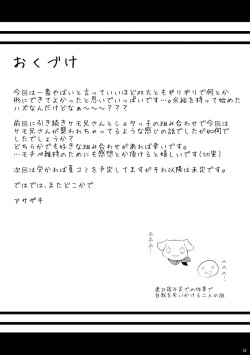 おくづけ
今回は一番やばいと言っていいほど双方ともギリギリで何とか
形にできてよかったと思いでいっぱいです…。余裕を持って始めた
ハズなんだけどなぁ～～～？？？
前回に引き続きケモ兄さんとショタっ子の組み合わせで今回は
ケモ兄さんが襲われちゃってるような感じの話でしたが如何で
したでしょうか？
どちらかでも好きな組み合わせがあれば幸いです。
…モチベ維持のためにも感想とか頂けると嬉しいです(切実)
次回は受かれば夏コミを予定してますがそれ以降は未定です。
ではでは、またどこかで
アサザキ
連日寝不足での作業で
自我を失いかける二人の図